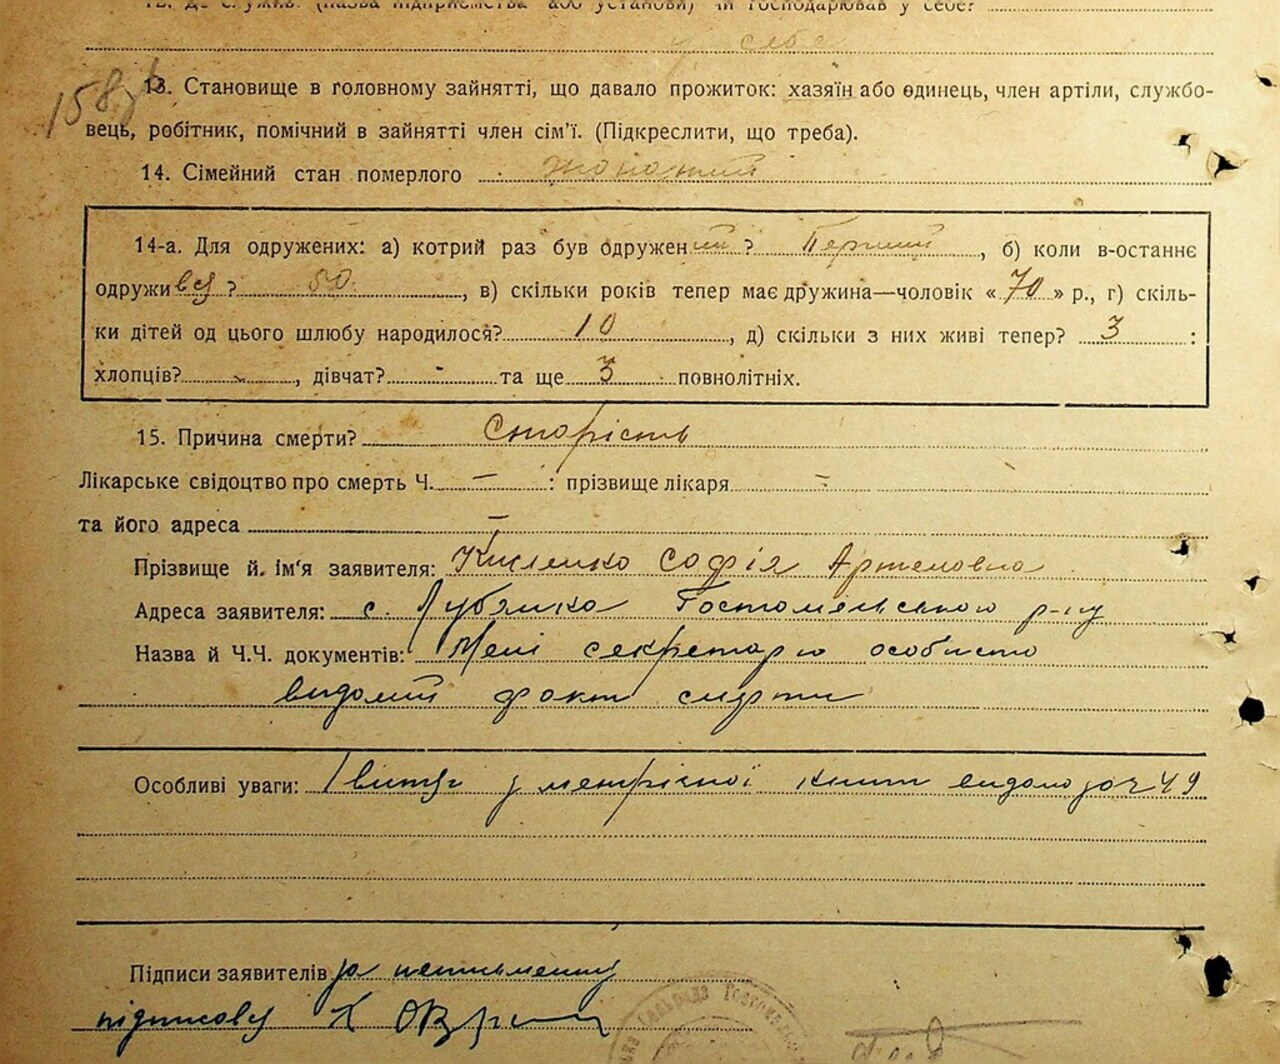 12. Де служив. (назва підприємства або установи) чи господарював у себе?
у себе
158
13. Становище в головному зайнятті, що давало прожиток: хазяїн або одинець, член артілі, службо-
вець, робітник, помічний в зайнятті член сім'ї. (Підкреслити, що треба).
14. Сімейний стан померлого жонатий
14-а. Для одружених: а) котрий раз був одружений? Перший, б) коли в-останнє
одруживсь? 50, в) скільки років тепер має дружина—чоловік «70» р., г) скіль-
ки дітей од цього шлюбу народилося? 10, д) скільки з них живі тепер? 3:
хлопців? -, дівчат? - та ще 3 повнолітніх.
15. Причина смерти? Старість
Лікарське свідоцтво про смерть Ч. — : прізвище лікаря —
та його адреса —
Прізвище й ім'я заявителя: Кисленко Софія Артемовна
Адреса заявителя: с. Лубянка Гостомельського р-ну
Назва й Ч.Ч. документів: Мені секретарю особисто
видомий факт смерти
Особливі уваги: витяг з метрісної книги видано за ч 49
Підписи заявителів за неписьменну
підписовсь К